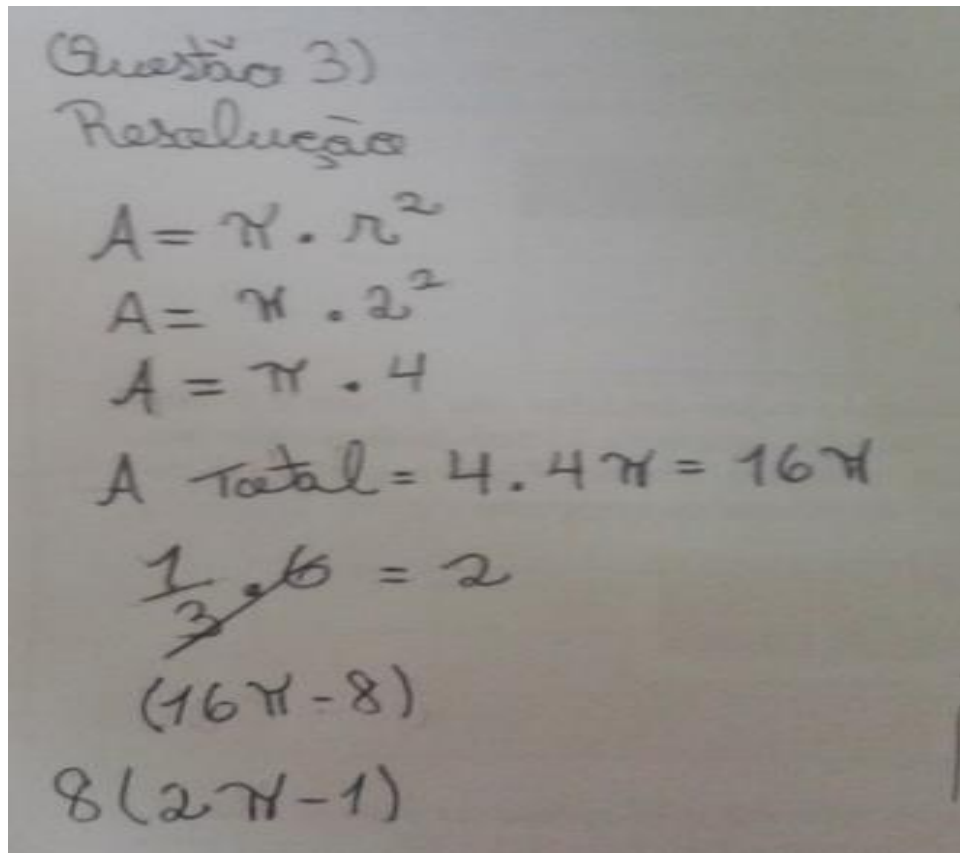 Questão 3)
Resolução
A = π . r²
A = π . 2²
A = π . 4
A Total = 4 . 4π = 16π
1/3 . 6 = 2
(16π - 8)
8(2π - 1)